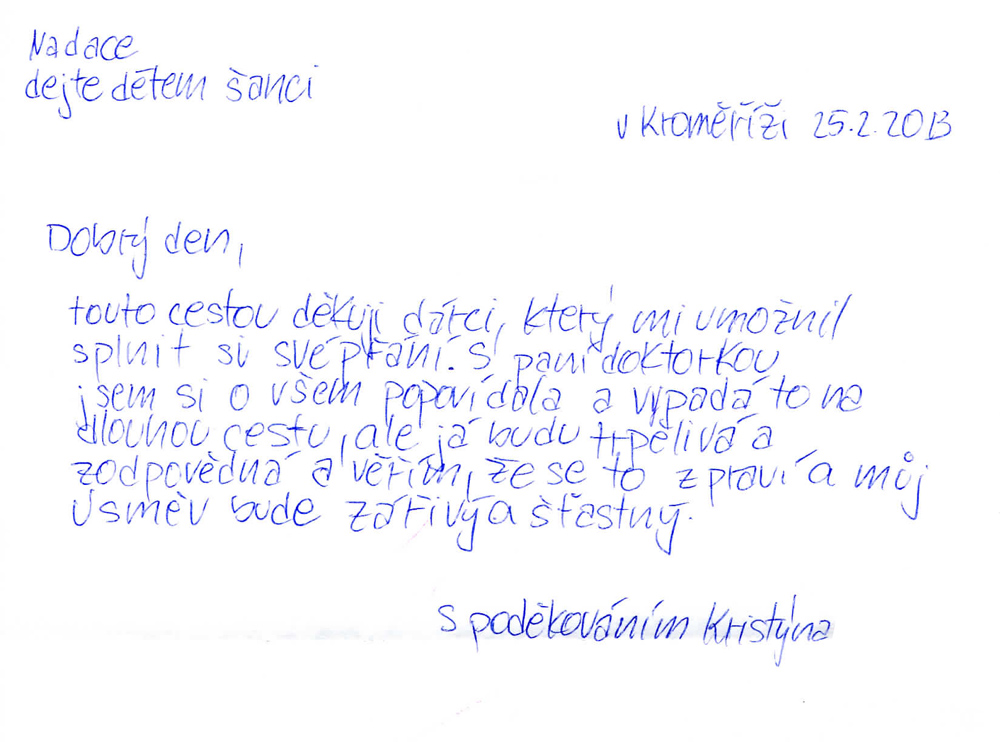 Nadace
dejte dětem šanci
v Kroměříži 25.2.2013
Dobrý den,
touto cestou děkuji dárci, který mi umožnil
splnit si své přání. S paní doktorkou
jsem si o všem popovídala a vypadá to na
dlouhou cestu, ale já budu trpělivá a
zodpovědná a věřím, že se to zpraví a můj
úsměv bude zářivý a šťastný.
S poděkováním Kristýna